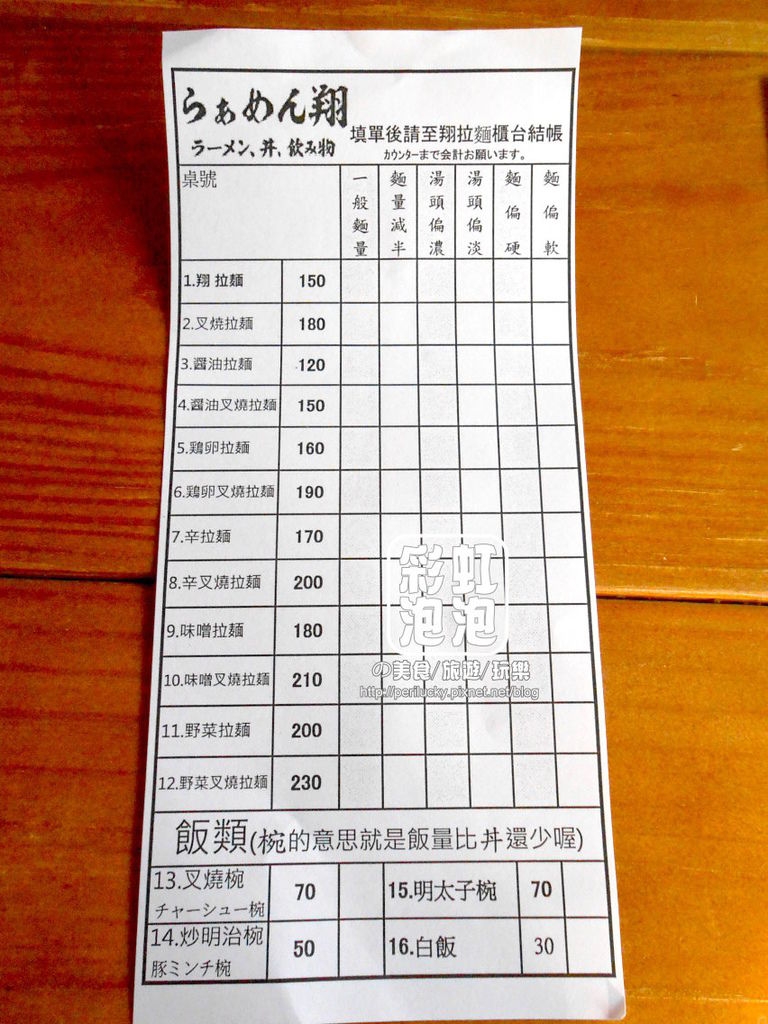 らぁめん翔
ラーメン、丼、飲み物
填單後請至翔拉麵櫃台結帳
カウンターまで会計お願います。
桌號
一般麵量
麵量減半
湯頭偏濃
湯頭偏淡
麵偏硬
麵偏軟
1.翔 拉麵 150
2.叉燒拉麵 180
3.醤油拉麵 120
4.醤油叉燒拉麵 150
5.鶏卵拉麵 160
6.鶏卵叉燒拉麵 190
7.辛拉麵 170
8.辛叉燒拉麵 200
9.味噌拉麵 180
10.味噌叉燒拉麵 210
11.野菜拉麵 200
12.野菜叉燒拉麵 230
彩虹
泡泡
の美食/旅遊/玩樂
http://perilucky.pixnet.net/blog
飯類(椀的意思就是飯量比丼還少喔)
13.叉燒椀 70
チャーシュー椀
15.明太子椀 70
14.炒明治椀 50
豚ミンチ椀
16.白飯 30